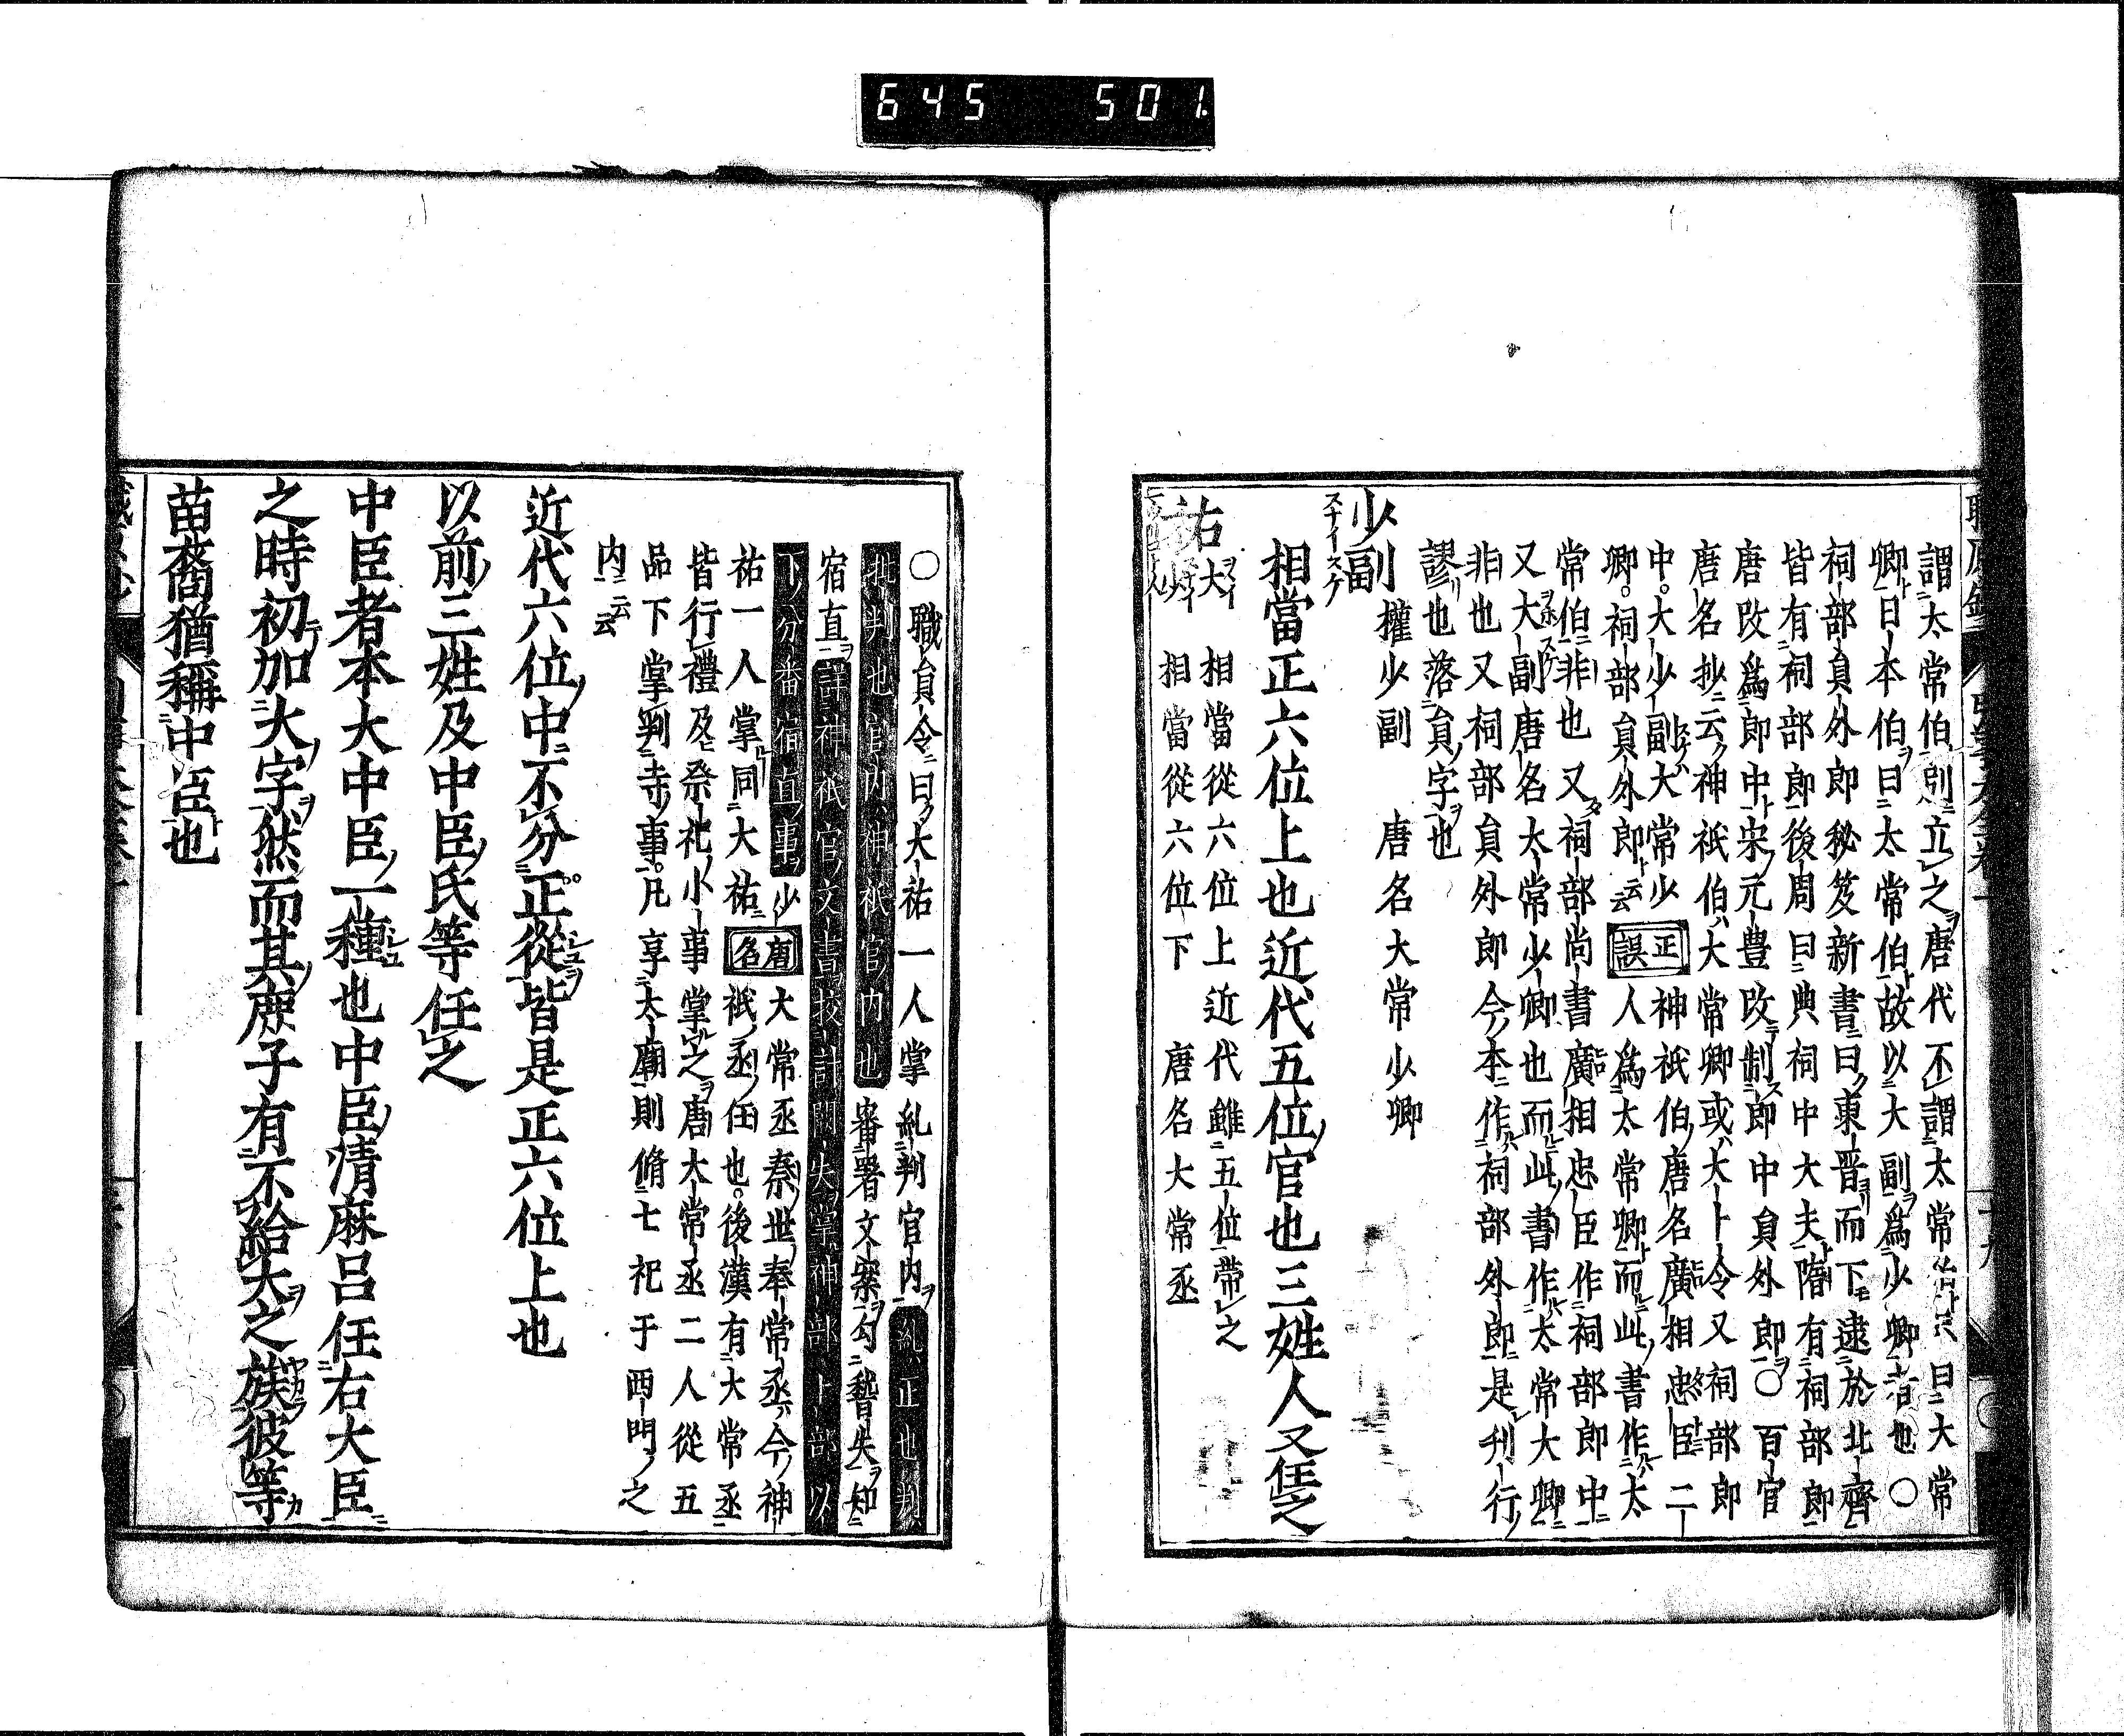 645 501
謂太常伯別立之唐代不謂太常伯 曰大常
卿曰本伯曰太常伯故以大副爲少卿者也○
祠部員外郎秘笈新書曰東晋而下逮於北齊
皆有祠部郎後周曰典祠中大夫隋有祠部郎
唐改爲郎中宋元豊改制郎中員外郎○百官
唐名抄云神祇伯大常卿或大卜令又祠部郎
中大少副大常少正誤神祇伯唐名廣相忠臣二
卿祠部員外郎云云人爲太常卿而此書作太
常伯非也又祠部尚書廣相忠臣作祠部郎中
又大副唐名太常少卿也而此書作太常大卿
非也又祠部員外郎今本作祠部外郎是刋行
謬也落員字也
少副 權少副 唐名大常少卿
相當正六位上也近代五位官也三姓人又任之
祐大 相當從六位上近代雖五位帶之
少 相當從六位下 唐名大常丞
○職員令曰大祐一人掌糺判官内糺正也判
批判也官内神祇官内也審署文案勾稽失知
宿直詳神祇官文書挍計闕失掌神部卜部以
下分番宿直事少唐名大常丞秦世奉常丞今神
祐一人掌同大祐祇丞任也後漢有大常丞
皆行禮及祭祀小事掌之唐大常丞二人從五
品下掌判寺事凡享太廟則脩七祀于西門之
内云云
近代六位中不分正從皆是正六位上也
以前三姓及中臣氏等任之
中臣者本大中臣一種也中臣清麻呂任右大臣
之時初加大字然而其庶子有不給大之族彼等
苗裔猶稱中臣也